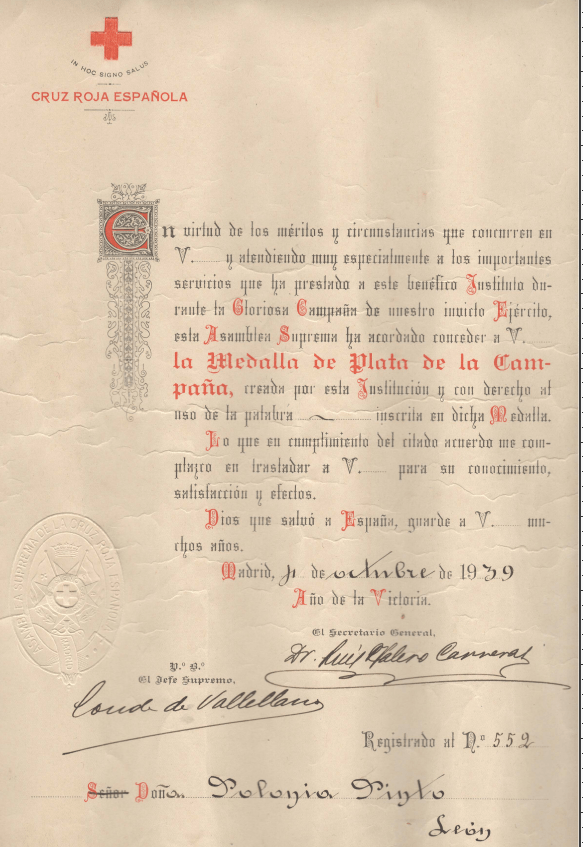 IN HOC SIGNO SALUS
CRUZ ROJA ESPAÑOLA
En virtud de los méritos y circunstancias que concurren en
V. y atendiendo muy especialmente a los importantes
servicios que ha prestado a este benéfico Instituto du-
rante la Gloriosa Campaña de nuestro invicto Ejército,
esta Asamblea Suprema ha acordado conceder a V.
la Medalla de Plata de la Cam-
paña, creada por esta Institución y con derecho al
uso de la palabra inscrita en dicha Medalla.
Lo que en cumplimiento del citado acuerdo me com-
plazco en trasladar a V. para su conocimiento,
satisfacción y efectos.
Dios que salvó a España, guarde a V. mu-
chos años.
Madrid, de octubre de 1939
Año de la Victoria.
El Secretario General,
Dr. Luis
V.º B.º
El Jefe Supremo,
Conde de Vallellano
Registrado al N.º 552
Señor Doña Polonia Pinto
León
ASAMBLEA SUPREMA DE LA CRUZ ROJA ESPAÑOLA